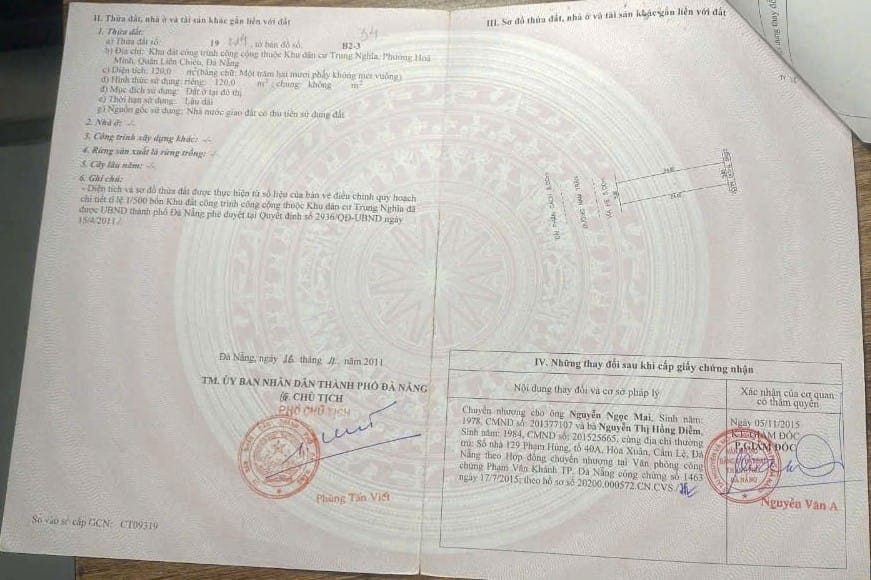 II. Thửa đất, nhà ở và tài sản khác gắn liền với đất
1. Thửa đất:
a) Thửa đất số: 19 , tờ bản đồ số: B2-3
b) Địa chỉ: Khu đất công trình công cộng thuộc Khu dân cư Trung Nghĩa, Phường Hoà
Minh, Quận Liên Chiểu, Đà Nẵng
c) Diện tích: 120,0 m² (bằng chữ: Một trăm hai mươi phẩy không mét vuông)
d) Hình thức sử dụng: riêng: 120,0 m² ; chung: không m²
đ) Mục đích sử dụng: Đất ở tại đô thị
e) Thời hạn sử dụng: Lâu dài
g) Nguồn gốc sử dụng: Nhà nước giao đất có thu tiền sử dụng đất
2. Nhà ở: -/-
3. Công trình xây dựng khác: -/-
4. Rừng sản xuất là rừng trồng: -/-
5. Cây lâu năm: -/-
6. Ghi chú:
- Diện tích và sơ đồ thửa đất được thực hiện từ số liệu của bản vẽ điều chỉnh quy hoạch
chi tiết tỉ lệ 1/500 bốn Khu đất công trình công cộng thuộc Khu dân cư Trung Nghĩa đã
được UBND thành phố Đà Nẵng phê duyệt tại Quyết định số 2936/QĐ-UBND ngày
15/4/2011./.
Đà Nẵng, ngày 16 tháng năm 2011
TM. ỦY BAN NHÂN DÂN THÀNH PHỐ ĐÀ NẴNG
CHỦ TỊCH
PHÓ CHỦ TỊCH
Phùng Tấn Viết
Số vào sổ cấp GCN: CT09319
III. Sơ đồ thửa đất, nhà ở và tài sản khác gắn liền với đất
IV. Những thay đổi sau khi cấp giấy chứng nhận
Nội dung thay đổi và cơ sở pháp lý
Xác nhận của cơ quan
có thẩm quyền
Chuyển nhượng cho ông Nguyễn Ngọc Mai, Sinh năm:
1978, CMND số: 201377107 và bà Nguyễn Thị Hồng Diễm,
Sinh năm: 1984, CMND số: 201525665, cùng địa chỉ thường
trú: Số nhà 129 Phạm Hùng, tổ 40A, Hòa Xuân, Cẩm Lệ, Đà
Nẵng theo Hợp đồng chuyển nhượng tại Văn phòng công
chứng Phạm Văn Khánh TP. Đà Nẵng công chứng số 1463
ngày 17/7/2015; theo hồ sơ số 20200.000572.CN.CVS./.
Ngày 05/11/2015
KT.GIÁM ĐỐC
P.GIÁM ĐỐC
Nguyễn Văn A